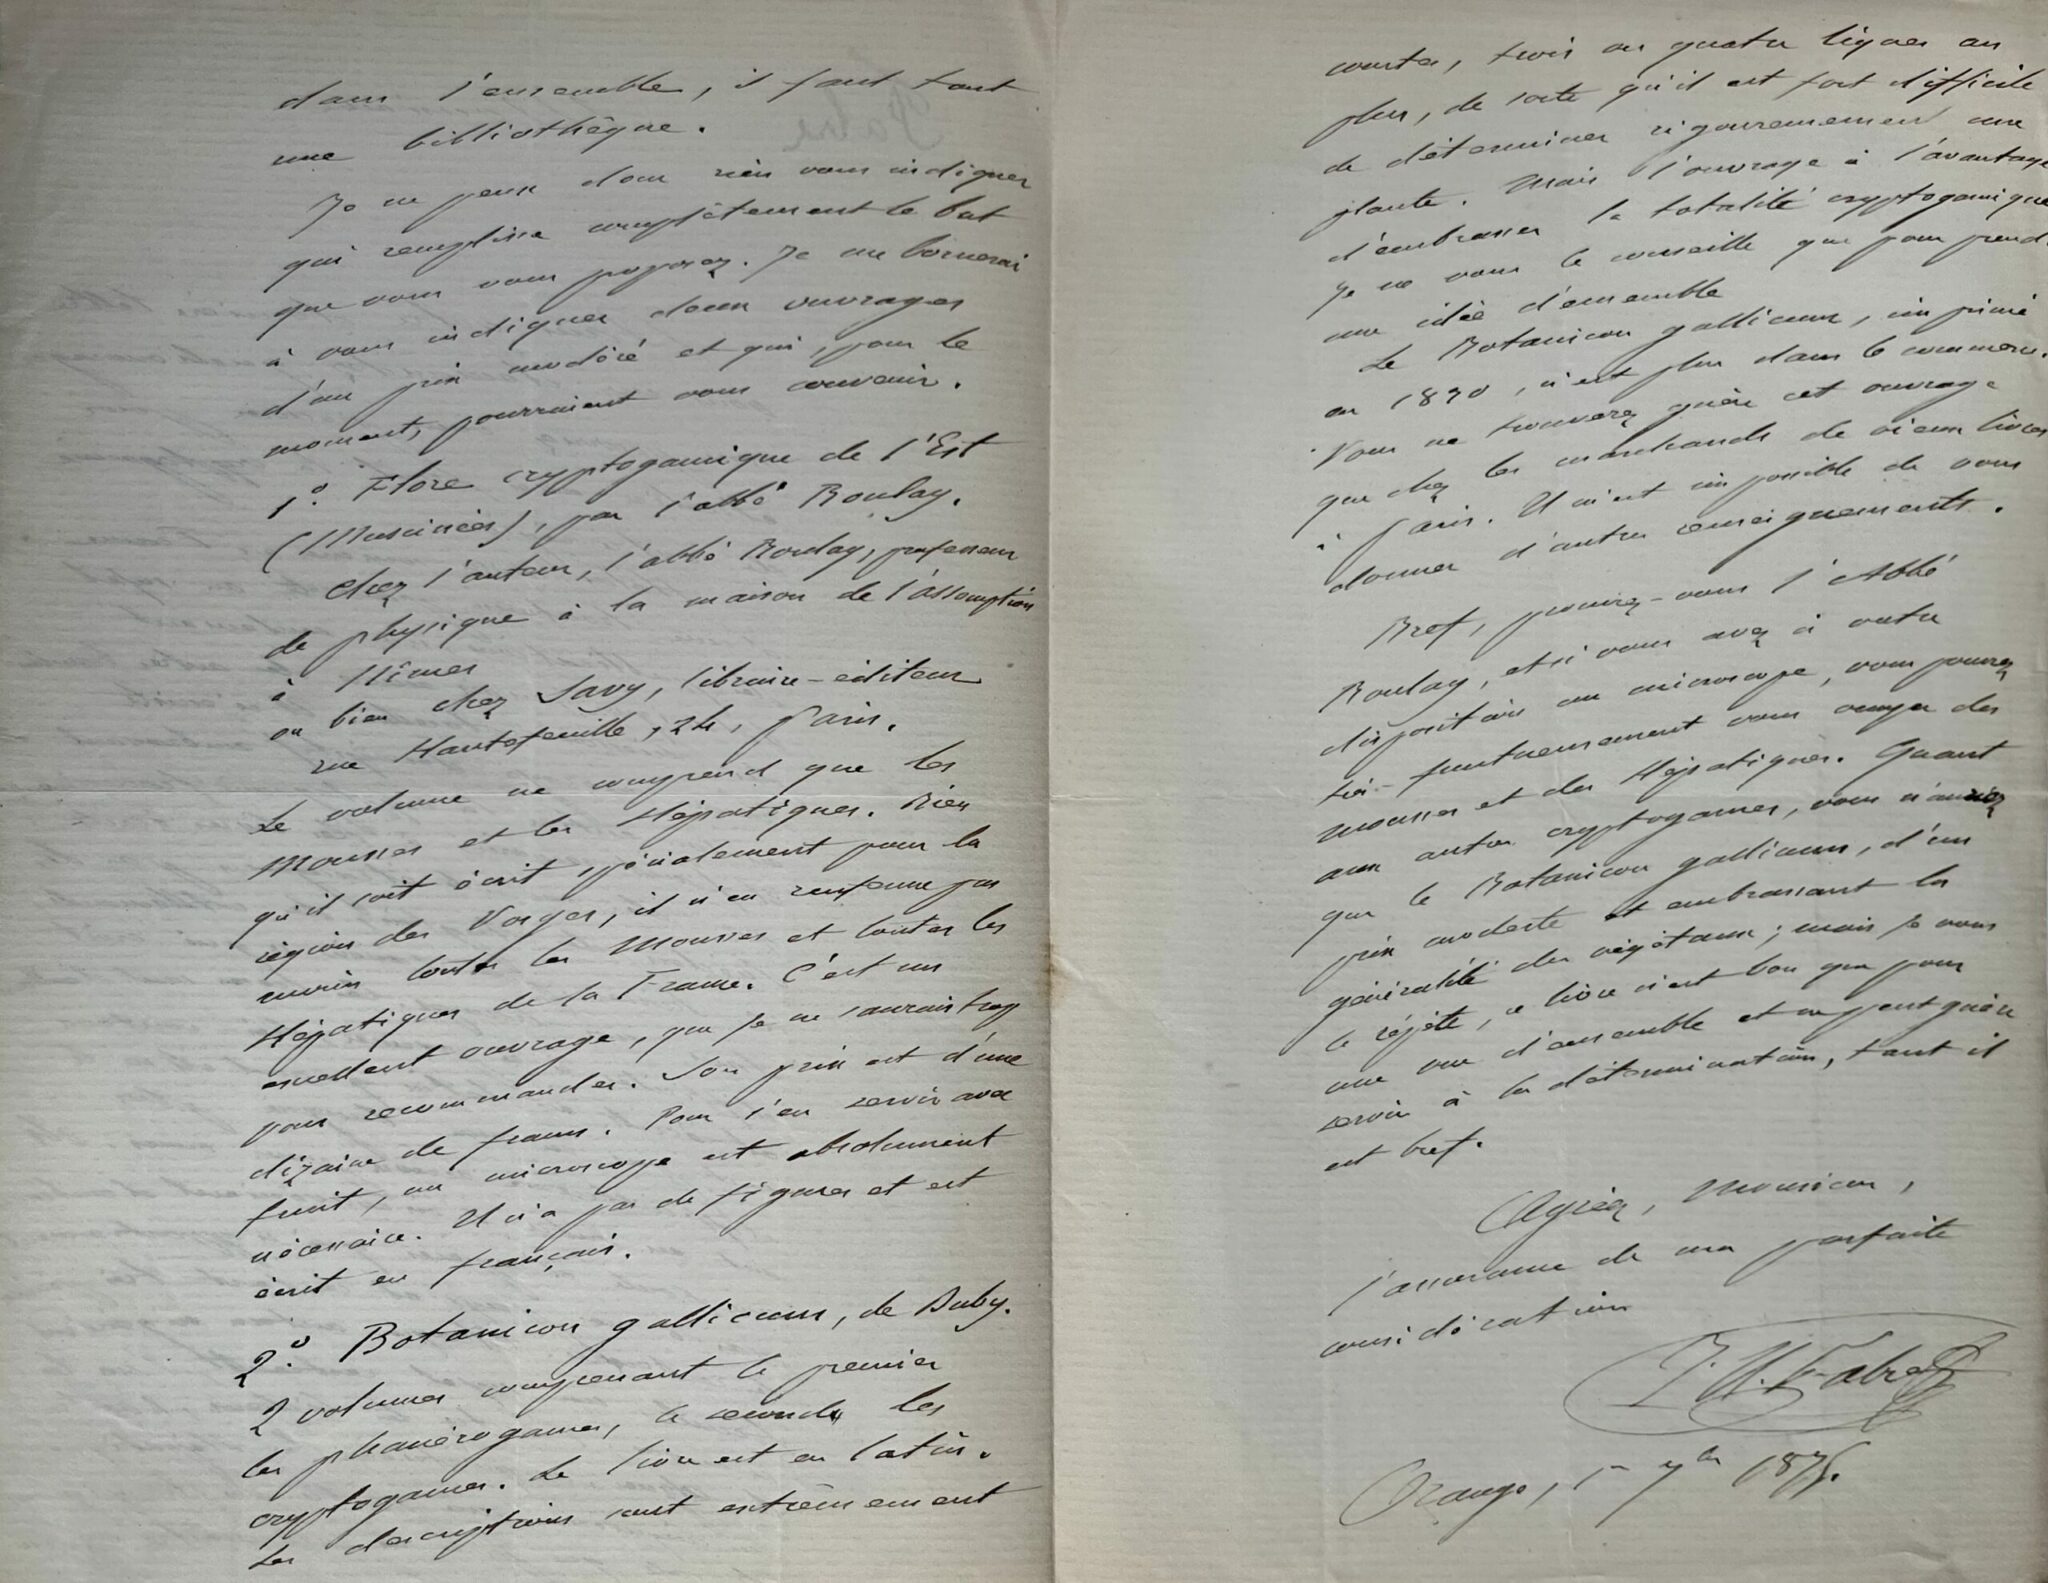 dans l'ensemble, il faut tout
une bibliothèque.
Je ne peux donc rien vous indiquer
qui remplisse complètement le but
que vous vous proposez. Je me bornerai
à vous indiquer deux ouvrages
d'un prix modéré et qui, pour le
moment, pourraient vous convenir.
1º Flore cryptogamique de l'Est
(Muscinées), par l'abbé Boulay.
Chez l'auteur, l'abbé Boulay, professeur
de physique à la maison de l'assomption
à Nîmes
ou bien chez Savy, libraire-éditeur
rue Hautefeuille, 24, Paris.
Le volume ne comprend que les
Mousses et les Hépatiques. Bien
qu'il soit écrit spécialement pour la
région des Vosges, il n'en renferme pas
moins toutes les Mousses et toutes les
Hépatiques de la France. C'est un
excellent ouvrage, que je ne saurais trop
vous recommander. Son prix est d'une
dizaine de francs. Pour s'en servir avec
fruit, un microscope est absolument
nécessaire. Il n'a pas de figures et est
écrit en français.
2º. Botanicon gallicum, de Duby.
2 volumes comprenant le premier
les phanérogames, le second les
cryptogames. Le livre est en latin.
Les descriptions sont extrêmement
courtes, trois ou quatre lignes au
plus, de sorte qu'il est fort difficile
de déterminer rigoureusement une
plante. Mais l'ouvrage a l'avantage
d'embrasser la totalité cryptogamique
Je ne vous le conseille que pour prend.
une idée d'ensemble
Le Botanicon gallicum, imprimé
en 1830, n'est plus dans le commerce.
Vous ne trouverez guère cet ouvrage
que chez les marchands de vieux livres
à Paris. Il m'est impossible de vous
donner d'autres renseignements.
Bref, procurez-vous l'Abbé
Boulay, et si vous avez à votre
disposition un microscope, vous pourrez
très-fructueusement vous occuper des
mousses et des Hépatiques. Quant
aux autres cryptogames, vous n'aurez
que le Botanicon gallicum, d'un
prix modeste et embrassant la
généralité des végétaux; mais je vous
le répète, ce livre n'est bon que pour
une vue d'ensemble et ne peut guère
servir à la détermination, tant il
est bref.
Agréez, Monsieur,
l'assurance de ma parfaite
considération
J. H. Fabre
Orange, 1er 7bre 1875.